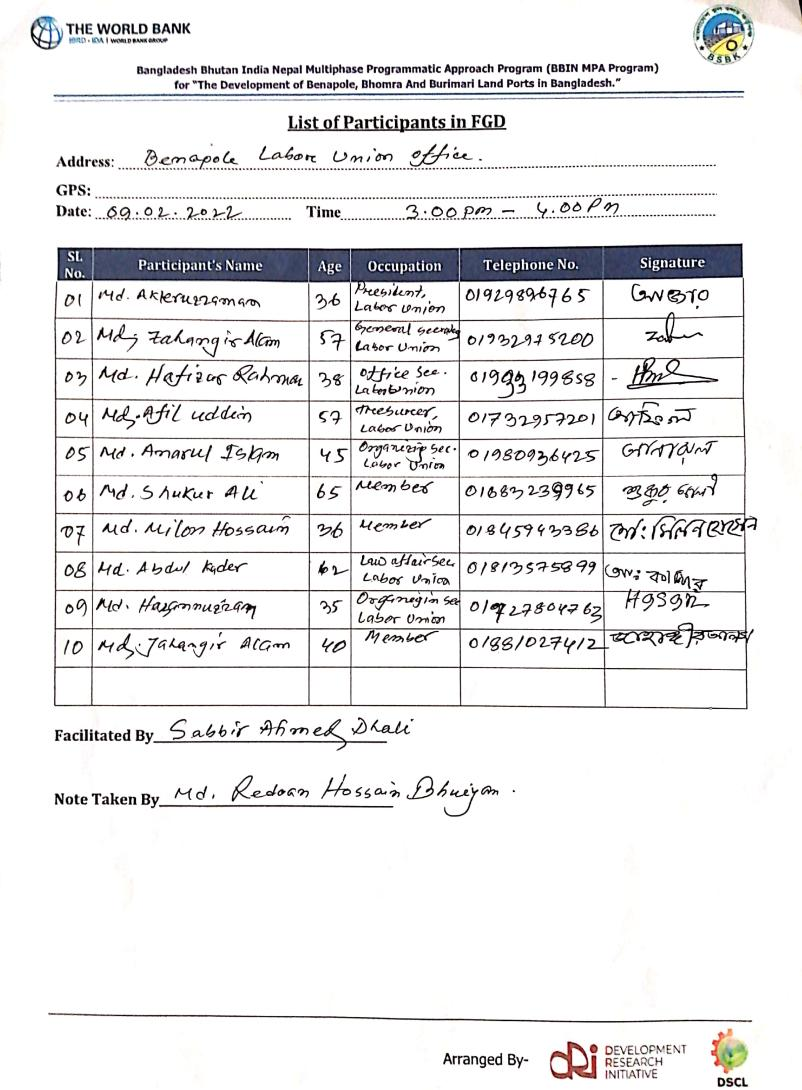 THE WORLD BANK
IBRD • IDA | WORLD BANK GROUP
BSBK
Bangladesh Bhutan India Nepal Multiphase Programmatic Approach Program (BBIN MPA Program)
for “The Development of Benapole, Bhomra And Burimari Land Ports in Bangladesh.”
List of Participants in FGD
Address: Benapole Labore Union office.
GPS:
Date: 09.02.2022 Time 3.00 pm - 4.00 Pm
SL No. Participant's Name Age Occupation Telephone No. Signature
01 Md. Akteruzzaman 36 President, Labor Union 01929896765
02 Md. Zahangir Alam 57 General Labor Union 01932975200
03 Md. Hafizur Rahman 38 office Sec. Labor Union 199858
04 Md. Afil uddin 57 Labor Union 01732957201
05 Md. Anarul Islam 45 Sec. Labor Union 01980936425
06 Md. Shukur Ali 65 Member শুকুর আলী
07 Md. Milon Hossain 36 Member 01845943386 মোঃ মিলন হোসেন
08 Md. Abdul Kader 62 Law affair Sec Labor Union 01813575899 কাদের
09 Md. 35 Labor Union
10 Md. Jahangir Alam 40 Member 01881027412
Facilitated By Sabbir Ahmed Dhali
Note Taken By Md. Redoan Hossain Bhuiyan.
Arranged By-
DRi DEVELOPMENT
RESEARCH
INITIATIVE
DSCL